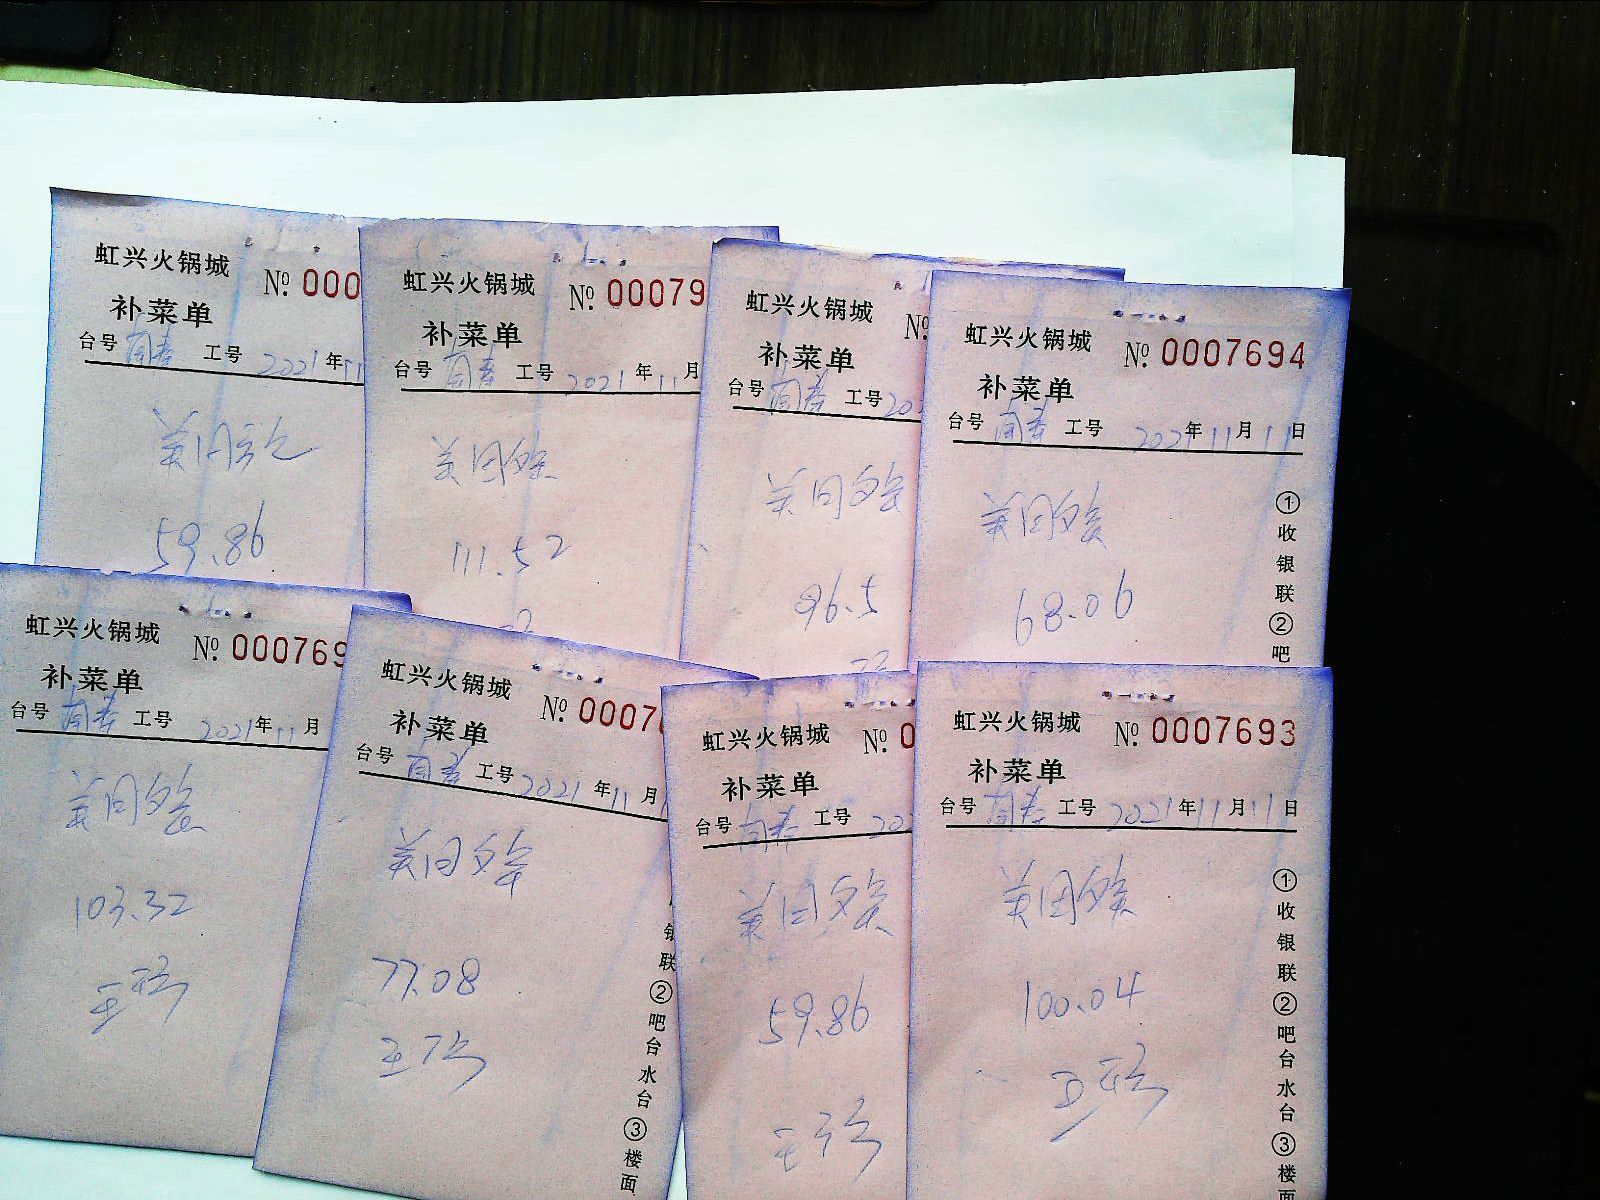 虹兴火锅城 №. 000
补菜单
台号 工号 2021年11
59.86
虹兴火锅城 №. 00079
补菜单
台号 工号 2021年11月
美团
111.52
虹兴火锅城 №
补菜单
台号 工号 202
美团
96.5
虹兴火锅城 №. 0007694
补菜单
台号 工号 2021年11月11日
美团
68.06
①收银联②吧
虹兴火锅城 №. 000769
补菜单
台号 工号 2021年11月
美团
103.32
虹兴火锅城 №. 0007
补菜单
台号 工号 2021年11月1
美团
77.08
银联②吧台水台③楼面
虹兴火锅城 №. 0
补菜单
台号 工号 202
美团
59.86
虹兴火锅城 №. 0007693
补菜单
台号 工号 2021年11月11日
美团
100.04
①收银联②吧台水台③楼面